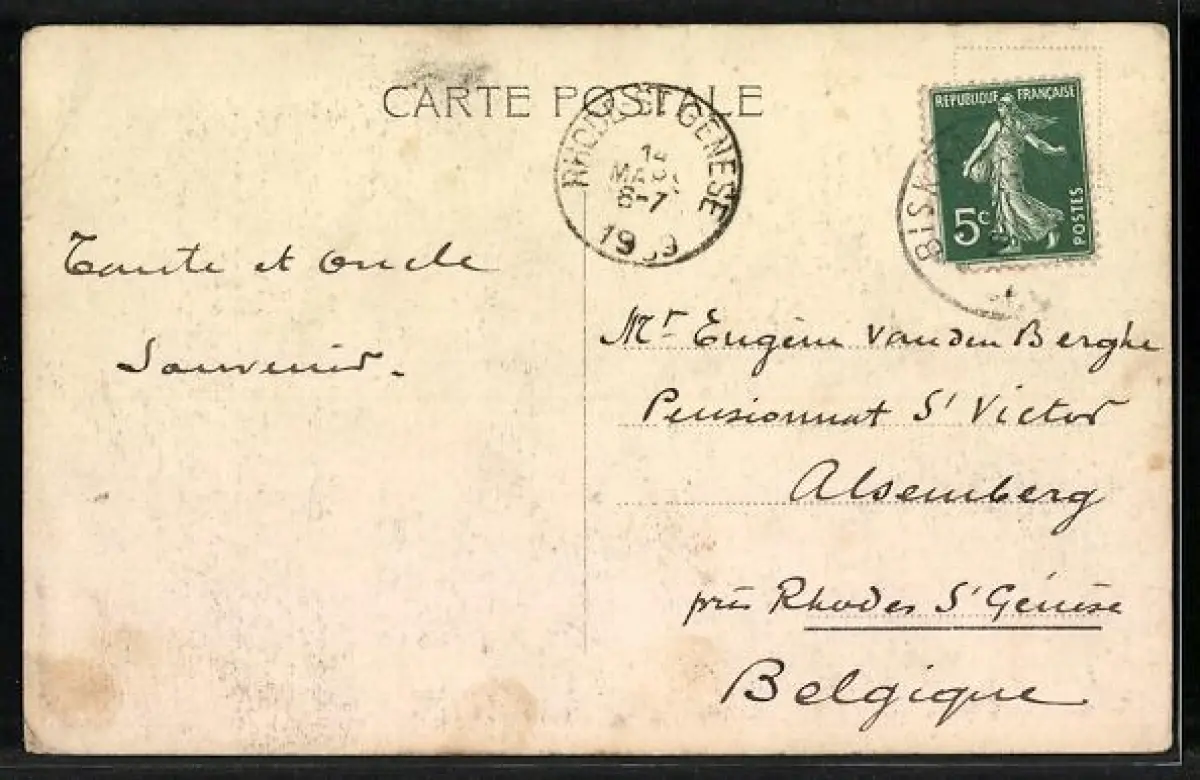 CARTE POSTALE
RHODE-ST-GENÈSE
14
MARS
6-7
1909
REPUBLIQUE FRANÇAISE
5c
POSTES
BISK
Tante et Oncle
Souvenir.
Mr Eugène Vanden Berghe
Pensionnat St Victor
Alsemberg
près Rhodes St Génèse
Belgique